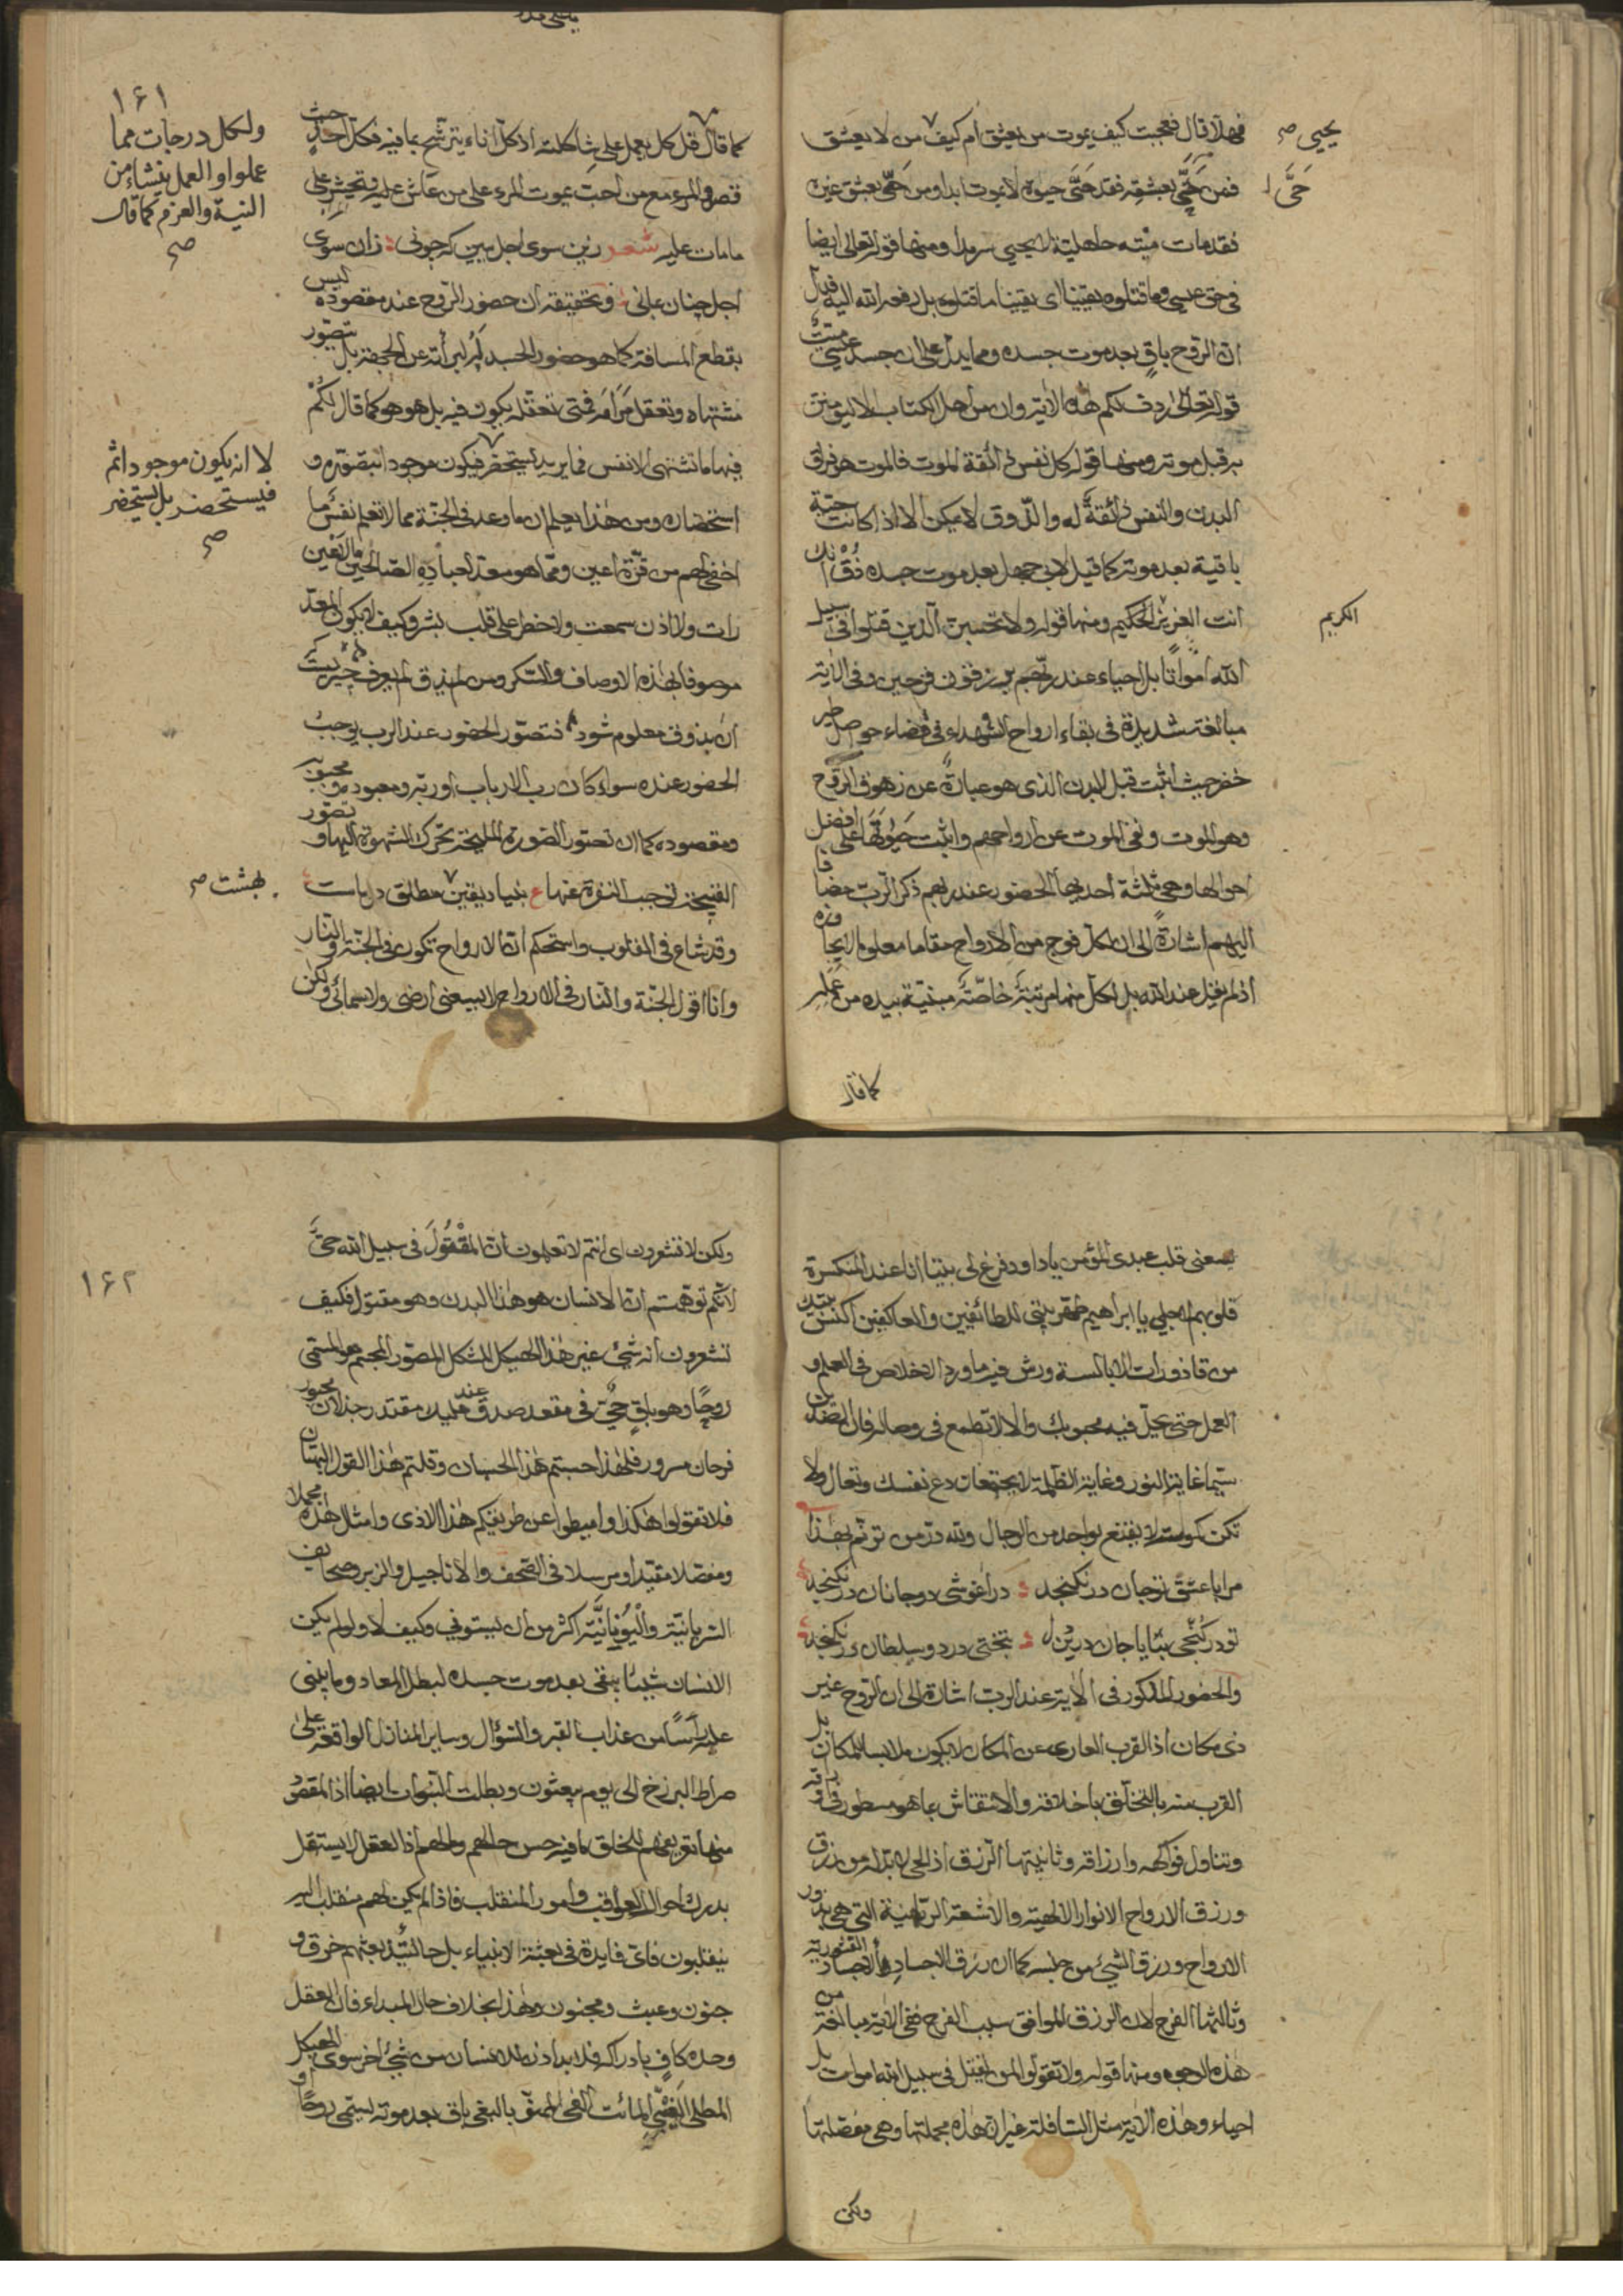 فهلا قال فعجبت كيف يموت من يعشق ام كيف من لا يعشق
يحيى صح
فمن حَيَّ بعشقه فقد حَيَّ حيوة لا يموت ابدا ومن حَيَّ بعشق غيره
حَيَّ
فقد مات ميتة جاهلية لا يحيى سرمدا ومنها قوله تعالى ايضا
فى حق عيسى وما قتلوه يقينا اى يقينا ما قتلوه بل رفعه الله اليه فدل
ان الروح باق بعد موت جسده ومما يدل على ان جسد عيسى ميت
قوله تعالى ردف لكم هذه الاية وان من اهل الكتاب الا ليؤمنن
به قبل موته ومنها قوله كل نفس ذائقة الموت فالموت هو فراق
البدن والنفس ذائقة له والذوق لا يمكن الا اذا كانت حية
باقية بعد موته كما قيل لابى جهل بعد موت جسده ذُقْ انك
انت العزيز الحكيم ومنها قوله ولا تحسبن الذين قتلوا فى سبيل
الكريم
الله امواتا بل احياء عند ربهم يرزقون فرحين وفى الاية
مبالغة شديدة فى بقاء ارواح الشهداء فى فضاء حواصل طير
خضر حيث اثبت قبل البدن الذى هو عبارة عن زهوق الروح
وهو الموت ونفى الموت عن ارواحهم واثبت حَيٰوتَهَا على افضل
احوالها وهى ثلثة احديها الحضور عند ربهم ذكر الرب مضافا
اليهم اشارة الى ان لكل فوج من الارواح مقاما معلوما لا يجاوزه
اذ لم يقل عند الله بل لكل منها مرتبة خاصّة مبنية بيده من عمله
كما قال
١۶١
كما قال قل كل يعمل على شاكلته اذ كل اناء يترشح بما فيه فكل احد حيث
ولكل درجات مما
عملوا والعمل ينشاء من
النية والعزم كما قال
صح
قصده والمرء مع من احب يموت المرء على من عاش عليه ويحشر على
ما مات عليه شعر زين سوى اجل ببين كه چونى زان سوى
اجل چنان بمانى وتحقيقه ان حضور الروح عند مقصوده ليس
بقطع المسافة كما هو حضور الجسد لبرائته عن الجهة بل بتصور
مشتهاه وتعقل مَرَامه فمتى تعقله يكون فيه بل هو هو كما قال لكم
فيها ما تشتهى الانفس فما يريد يستحضر فيكون موجودا بتصوره و
لا انه يكون موجودا ثم
فيستحضر بل يستحضر
صح
استحضاره ومن هذا يعلم ان ما وعد فى الجنة مما لا تعلم نفس ما
اخفى لهم من قرة اعين ومما هو معد لعباده الصالحين ما لا عين
رات ولا اذن سمعت ولا خطر على قلب بشر وكيف لا يكون المعد
موصوفا بهذه الاوصاف والسكر ومن لم يذق لم يعرف چيزيست
آن بذوق معلوم شود فتصور الحضور عند الرب يوجب
الحضور عنده سواء كان رب الارباب او ربه ومعبوده ومحبوبه
ومقصوده كما ان تصور الصورة المليحة تحرك الشهوة اليها وتصور
القبيحة توجب النفرة عنها ع بنياد يقين مطلق در باست
بهشت صح
وقد شاع فى القلوب واستحكم ان الارواح تكون فى الجنة والنار
وانا اقول الجنة والنار فى الارواح لا يسعنى ارضى ولا سمائى ولكن
يسعنى قلب عبدى المؤمن يا داود فرغ لى بيتا انا عند المنكسرة
قلوبهم لاجلى يا ابراهيم طهر بيتى للطائفين والعاكفين اكنس بيتك
من قاذورات الابالسة ورش فيه ماورد الاخلاص فى العلم و
العمل حتى يحل فيه محبوبك والا لا تطمع فى وصاله فان الضدين
سيما غاية النور وغاية الظلمة لا يجتمعان دع نفسك وتعال ولا
تكن كومت لا يقنع بواحد من الرجال ولله در من ترنم بهذا
مرا با عشق تو جان در نگنجد در اغوشى دو جانان در نگنجد
تو در گنجى بتا يا جان درين دل بتختى در دو سلطان در نگنجد
والحضور المذكور فى الاية عند الرب اشارة الى ان الروح غير
ذى مكان اذ القرب العارى عن المكان لا يكون ملابسا للمكان بل
القرب منه بالتخلق باخلاقه والانتقاش بما هو مسطور فى اوراقه
وتناول فواكهه وارزاقه وثانيتها الرزق اذ الحى لا بد له من رزق
ورزق الارواح الانوار الالهية والاشعة الربانية التى هى بذور
الارواح ورزق الشئ من جنسه كما ان رزق الاجساد الاجساد القشرية
وثالثها الفرح لان الرزق الموافق سبب الفرح ففى الاية مبالغة من
هذه الوجوه ومنها قوله ولا تقولوا لمن يقتل فى سبيل الله اموات بل
احياء وهذه الاية مثل السافلة غير ان هذه مجملتها وهى مفصلتها
ولكن
١۶٢
ولكن لا تشعرون اى انتم لا تعلمون ان المَقْتُولَ فى سبيل الله حىّ
لانكم توهمتم ان الانسان هو هذا البدن وهو مقتول فكيف
تشعرون انه شئ غير هذا الهيكل المشكل المصور المجسم هو المسمى
روحا وهو باق حى فى مقعد صدق عند مليك مقتدر جذلان محبور
فرحان مسرور فلهذا حسبتم هذا الحسبان وقلتم هذا القول البهتان
فلا تقولوا هكذا واميطوا عن طريقكم هذا الاذى وامثال هذه مجملا
ومفصلا مقيدا ومرسلا فى الصحف والاناجيل والزبر وصحايف
السريانية واليُونَانيَّة اكثر من ان يستوفى وكيف لا ولو لم يكن
الانسان شيئا يبقى بعد موت جسده لبطل المعاد وما يبنى
عليه رأسا من عذاب القبر والسؤال وساير المنازل الواقعة على
صراط البرزخ الى يوم يبعثون وبطلت النبوات ايضا اذ المقصود
منها تعريفهم للخلق ما فيه حسن حالهم ومالهم اذ العقل لا يستقل
بدرك احوال العواقب وامور المنقلب فاذا لم يكن لهم منقلب اليه
ينقلبون فاى فايدة فى بعثة الانبياء بل حالتئذ بعثهم خرق و
جنون وعبث ومجنون وهذا بخلاف حال المبداء فان العقل
وحده كاف بادراكه فلا بد اذن للانسان من شئ اخر سوى الهيكل
المطلى المائت باق بعد موته يسمى روحا او